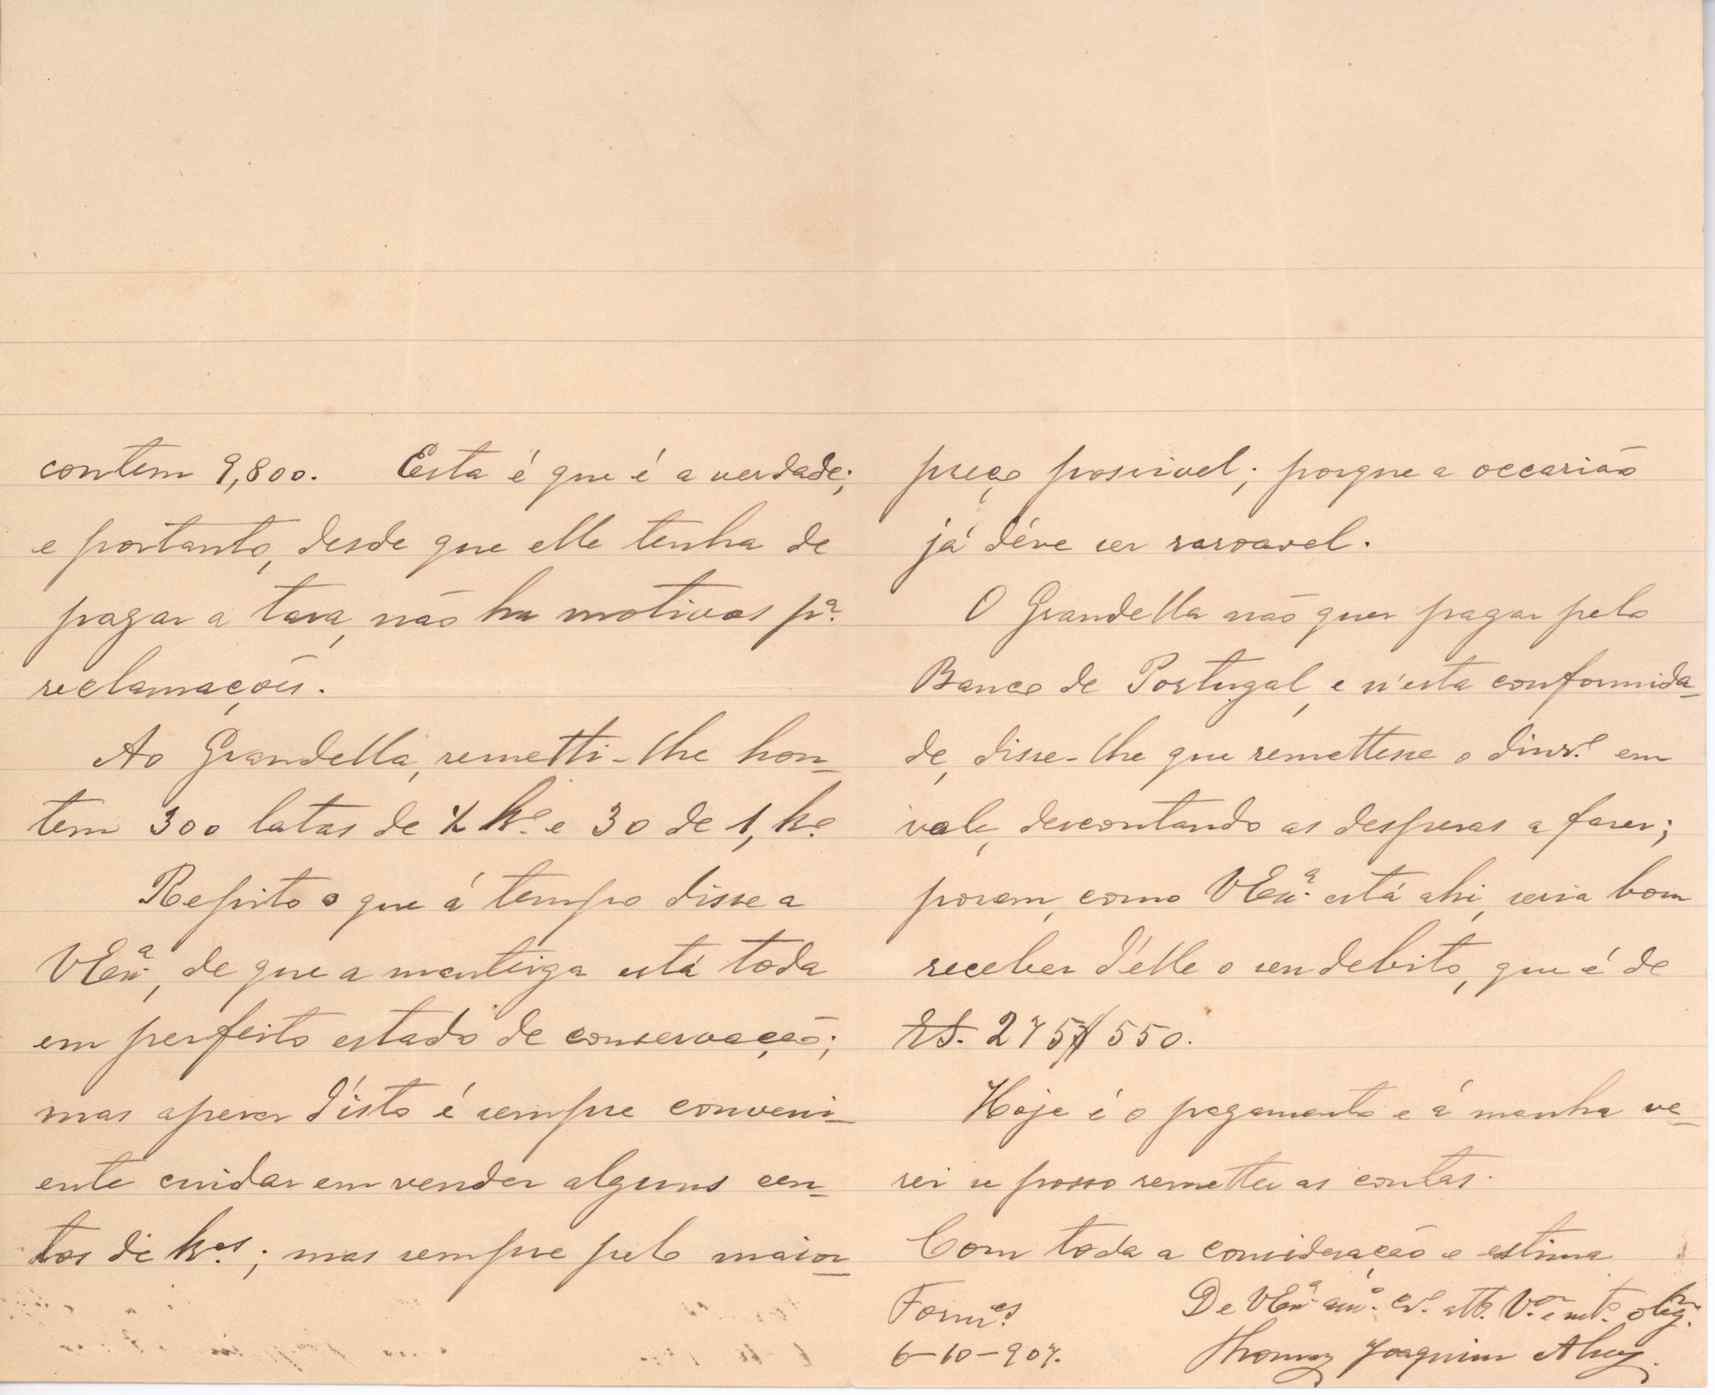 contem 9,800. Esta é que é a verdade;
e portanto, desde que elle tenha de
pagar a tara, não ha motivos pª.
reclamações.
Ao Grandella, remetti-lhe hon-
tem 300 latas de ½ kº e 30 de 1, kº
Repito o que á tempo disse a
VExª., de que a manteiga está toda
em perfeito estado de conservação;
mas apezar d'isto é sempre conveni-
ente cuidar em vender alguns cen-
tos de kºs.; mas sempre pelo maior
preço possivel; porque a occasião
já déve ser rasoavel.
O Grandella não quer pagar pelo
Banco de Portugal, e n'esta conformida-
de, disse-lhe que remettesse o dinrº. em
vale, descontando as despezas a fazer;
porem, como VExª. está ahi, seria bom
receber d'elle o seu debito, que é de
RS. 275$550.
Hoje é o pagamento e á manha ve-
rei se posso remetter as contas.
Com toda a consideração e estima
Forn.es
De VExª. amº. crº. attº. V.or e mtº. obgº.
6-10-907.
Thomaz Joaquim Alvez.